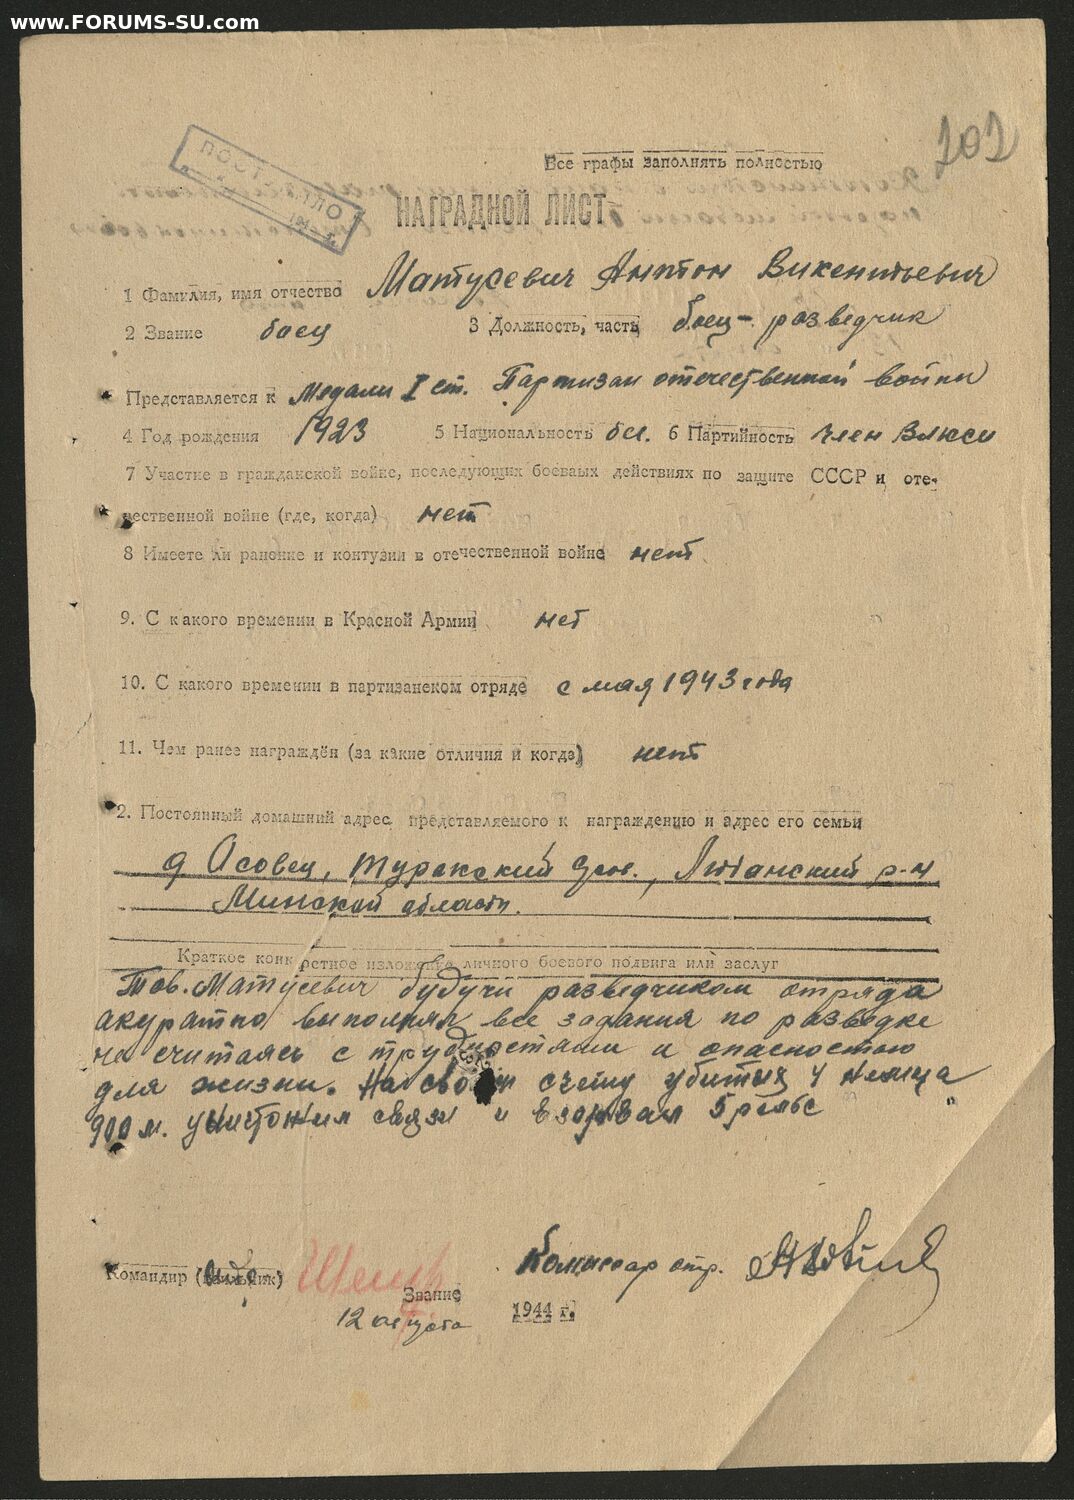 www.FORUMS-SU.com
202
Все графы заполнять полностью
ПОСТУПИЛО
НАГРАДНОЙ ЛИСТ
1 Фамилия, имя отчество Матусевич Антон Викентьевич
2 Звание боец 3 Должность, часть боец-разведчик
Представляется к Медали I ст. Партизан отечественной войны
4 Год рождения 1923 5 Национальность бел. 6 Партийность член ВЛКСМ
7 Участие в гражданской войне, последующих боевых действиях по защите СССР и оте-
чественной войне (где, когда) нет
8 Имеете ли ранение и контузии в отечественной войне нет
9. С какого времении в Красной Армии нет
10. С какого времении в партизанеком отряде с мая 1943 года
11. Чем ранее награждён (за какие отличия и когда) нет
2. Постоянный домашний адрес представляемого к награждению и адрес его семьи
д Осовец, Турокский с/сов., Любанский р-н
Минской области.
Краткое конкретное изложение личного боевого подвига или заслуг
Тов. Матусевич будучи разведчиком отряда
акуратно выполнял все задания по разведке
не считаясь с трудностями и опасностью
для жизни. На своем счету убитых 4 немца
900 м. уничтожил связи и взорвал 5 рельс
Командир Комиссар отр.
Звание
12 августа 1944 г.